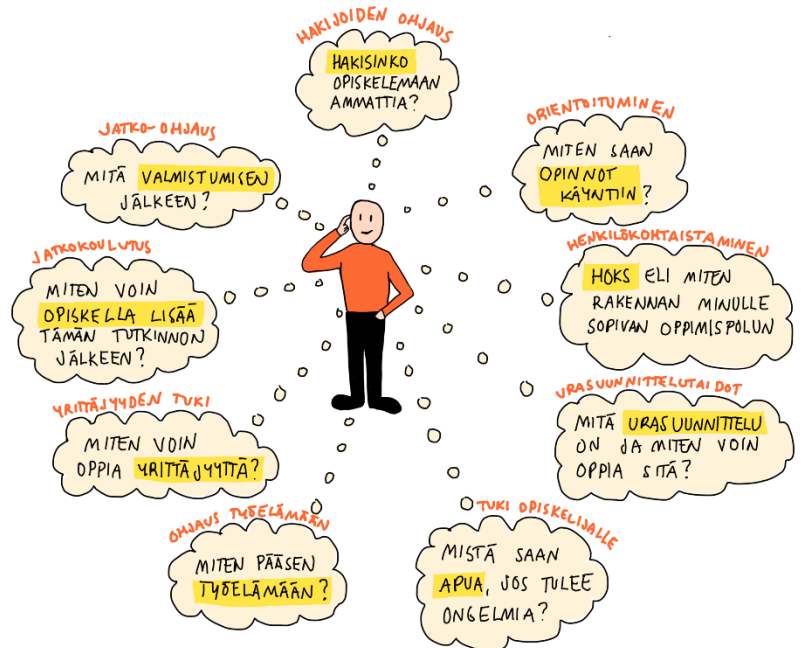 HAKIJOIDEN OHJAUS
HAKISINKO
OPISKELEMAAN
AMMATTIA?
ORIENTOITUMINEN
MITEN SAAN
OPINNOT
KÄYNTIIN?
HENKILÖKOHTAISTAMINEN
HOKS ELI MITEN
RAKENNAN MINULLE
SOPIVAN OPPIMISPOLUN
URASUUNNITTELUTAIDOT
MITÄ URASUUNNITTELU
ON JA MITEN VOIN
OPPIA SITÄ?
TUKI OPISKELIJALLE
MISTÄ SAAN
APUA, JOS TULEE
ONGELMIA?
OHJAUS TYÖELÄMÄÄN
MITEN PÄÄSEN
TYÖELÄMÄÄN?
YRITTÄJYYDEN TUKI
MITEN VOIN
OPPIA YRITTÄJYYTTÄ?
JATKOKOULUTUS
MITEN VOIN
OPISKELLA LISÄÄ
TÄMÄN TUTKINNON
JÄLKEEN?
JATKO-OHJAUS
MITÄ VALMISTUMISEN
JÄLKEEN?